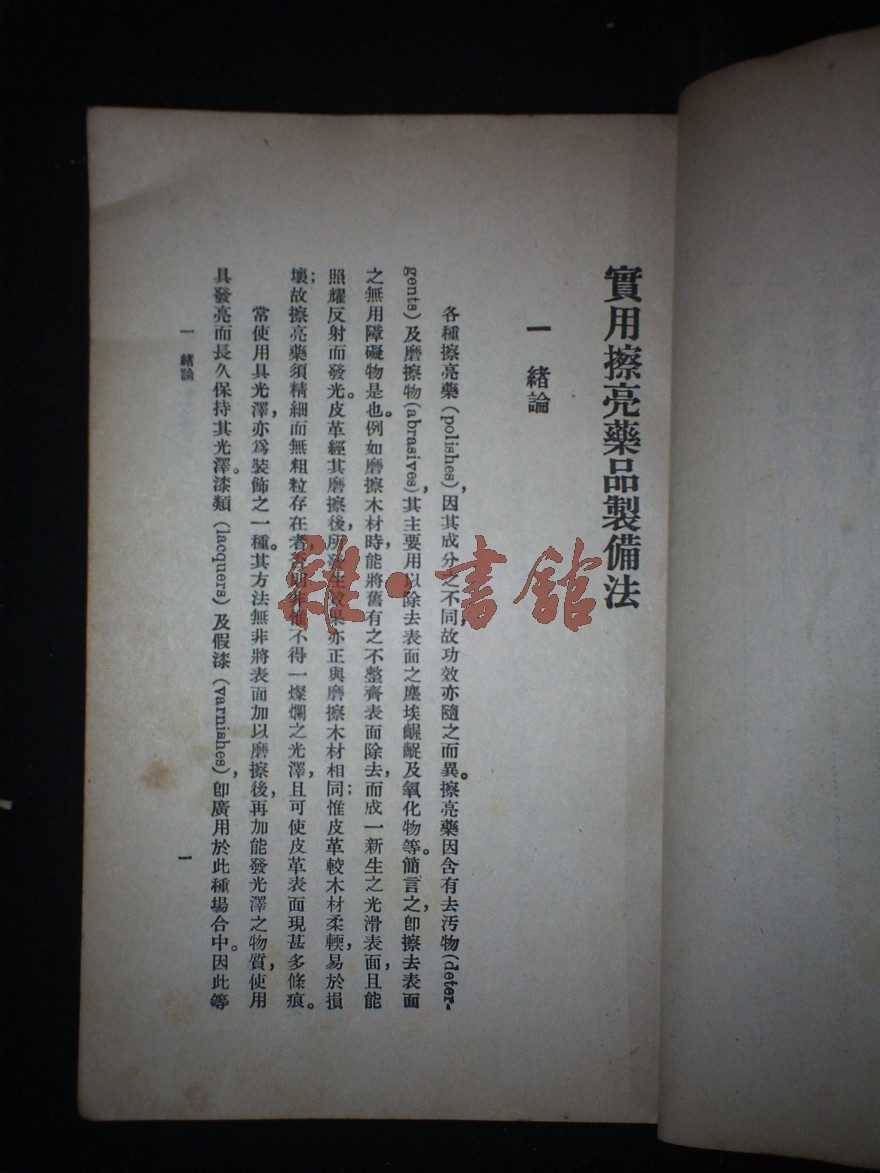 實用擦亮藥品製備法
一 緒論
各種擦亮藥(polishes),因其成分之不同,故功效亦隨之而異。擦亮藥因含有去污物(deter-
gents)及磨擦物(abrasives),其主要用以除去表面之塵埃齷齪及氧化物等。簡言之,卽擦去表面
之無用障礙物是也。例如磨擦木材時,能將舊有之不整齊表面除去,而成一新生之光滑表面,且能
照耀反射而發光。皮革經其磨擦後,所發生效果亦正與磨擦木材相同;惟皮革較木材柔輭,易於損
壞;故擦亮藥須精細而無粗粒存在者,否則非惟不得一燦爛之光澤,且可使皮革表面現甚多條痕。
常使用具光澤,亦爲裝飾之一種。其方法無非將表面加以磨擦後,再加能發光澤之物質,使用
具發亮而長久保持其光澤。漆類(lacquers)及假漆(varnishes),卽廣用於此種場合中。因此等
一 緒論
一
雜·書館